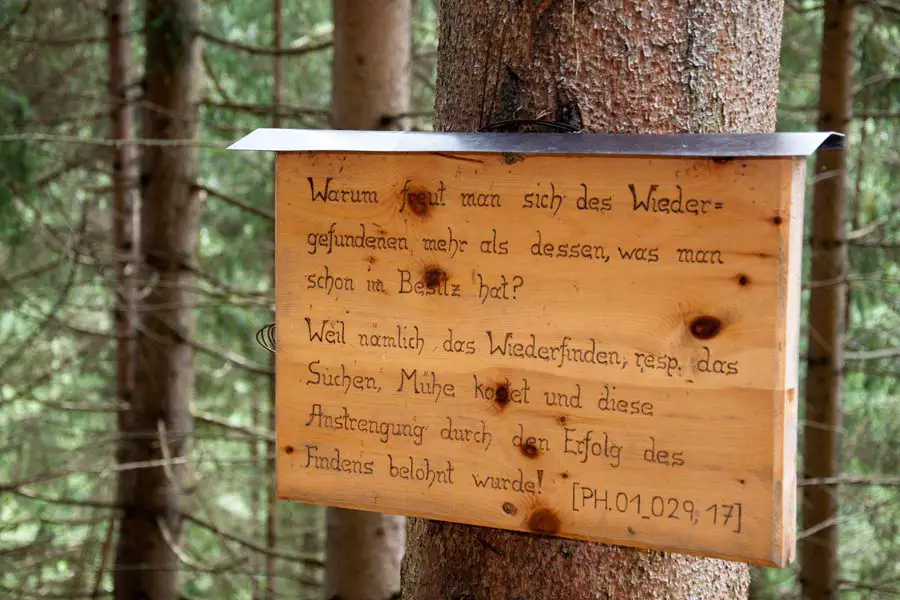 Warum freut man sich des Wieder=
gefundenen mehr als dessen, was man
schon im Besitz hat?
Weil nämlich das Wiederfinden, resp. das
Suchen, Mühe kostet und diese
Anstrengung durch den Erfolg des
Findens belohnt wurde!
[PH.01_029, 17]